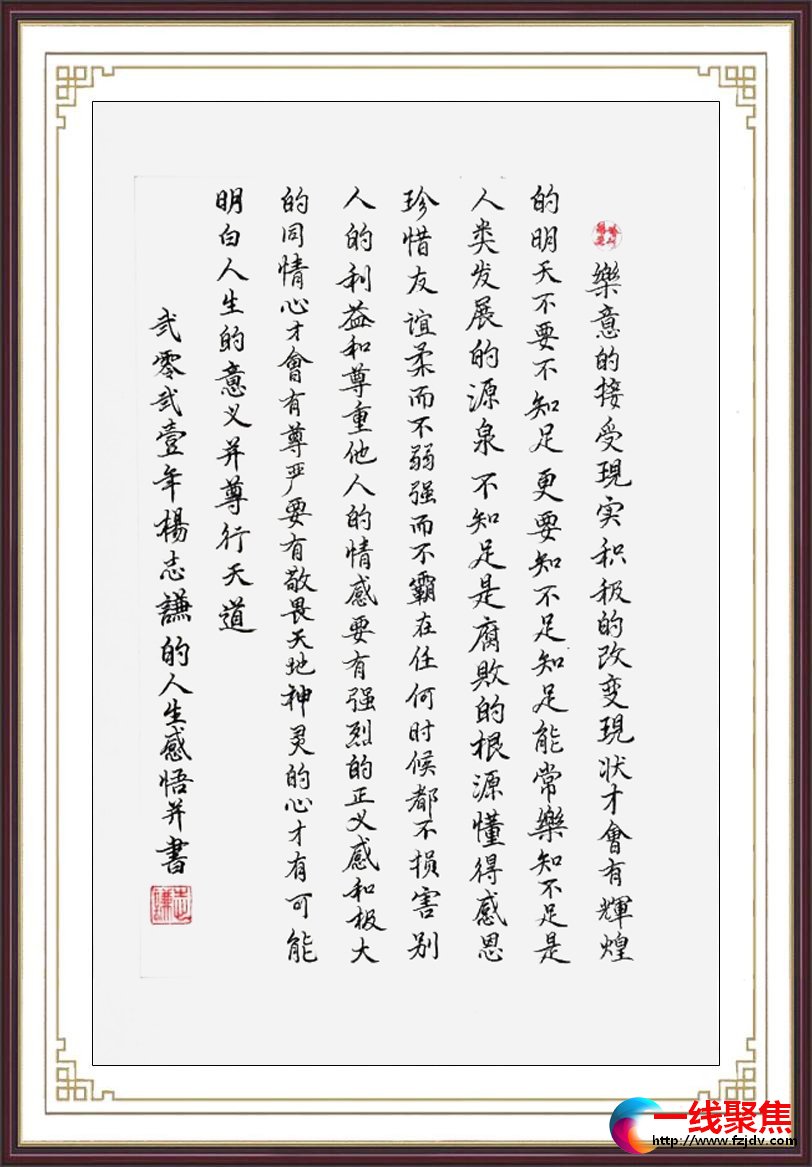 樂意的接受現实积极的改变現状才會有輝煌
的明天不要不知足更要知不足知足能常樂知不足是
人类发展的源泉不知足是腐敗的根源懂得感恩
珍惜友谊柔而不弱强而不霸在任何时候都不损害别
人的利益和尊重他人的情感要有强烈的正义感和极大
的同情心才會有尊严要有敬畏天地神灵的心才有可能
明白人生的意义并尊行天道
弍零弍壹年楊志謙的人生感悟并書
志謙
一线聚焦
http://www.fzjdv.com